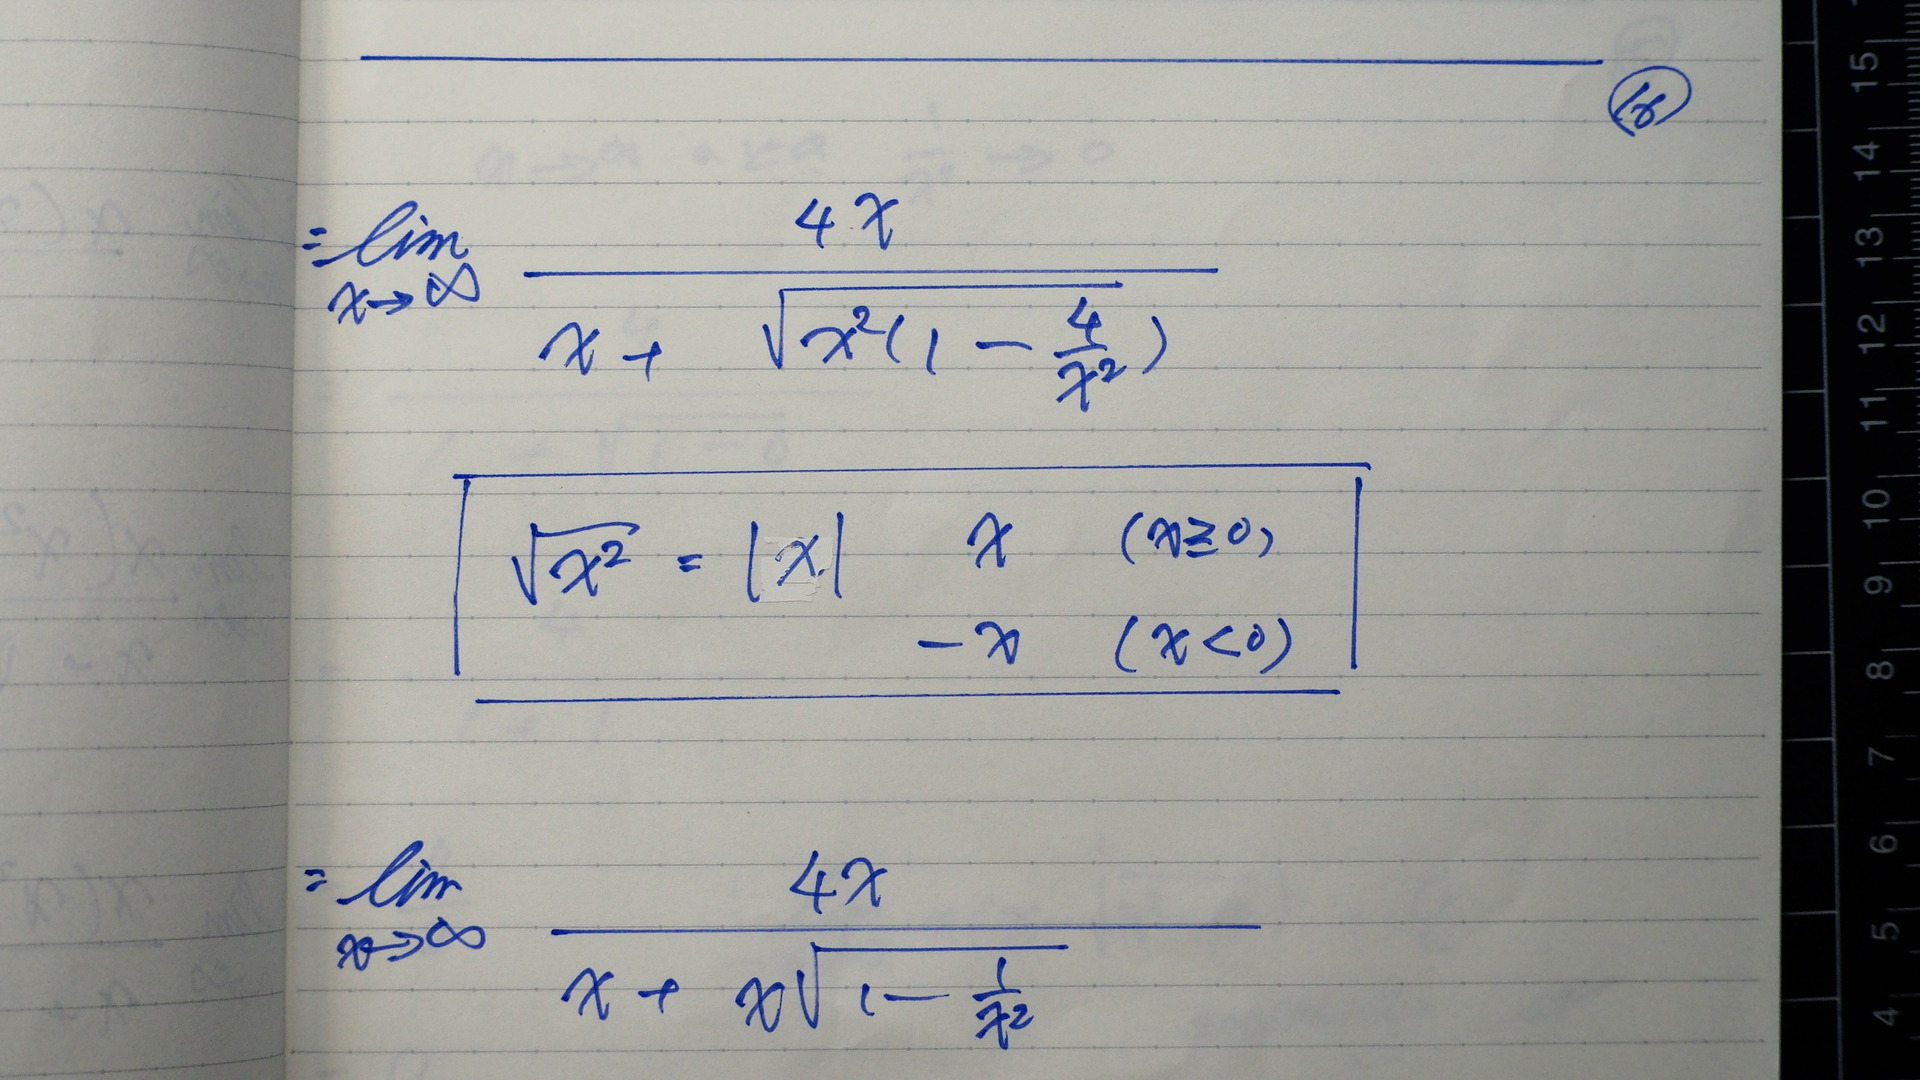 ⑯
= lim x→∞ 4x / (x + √(x²(1 − 4/x²)))
√x² = |x| x (x≧0)
−x (x<0)
= lim x→∞ 4x / (x + x√(1 − 1/x²))
15
14
13
12
11
10
9
8
7
6
5
4